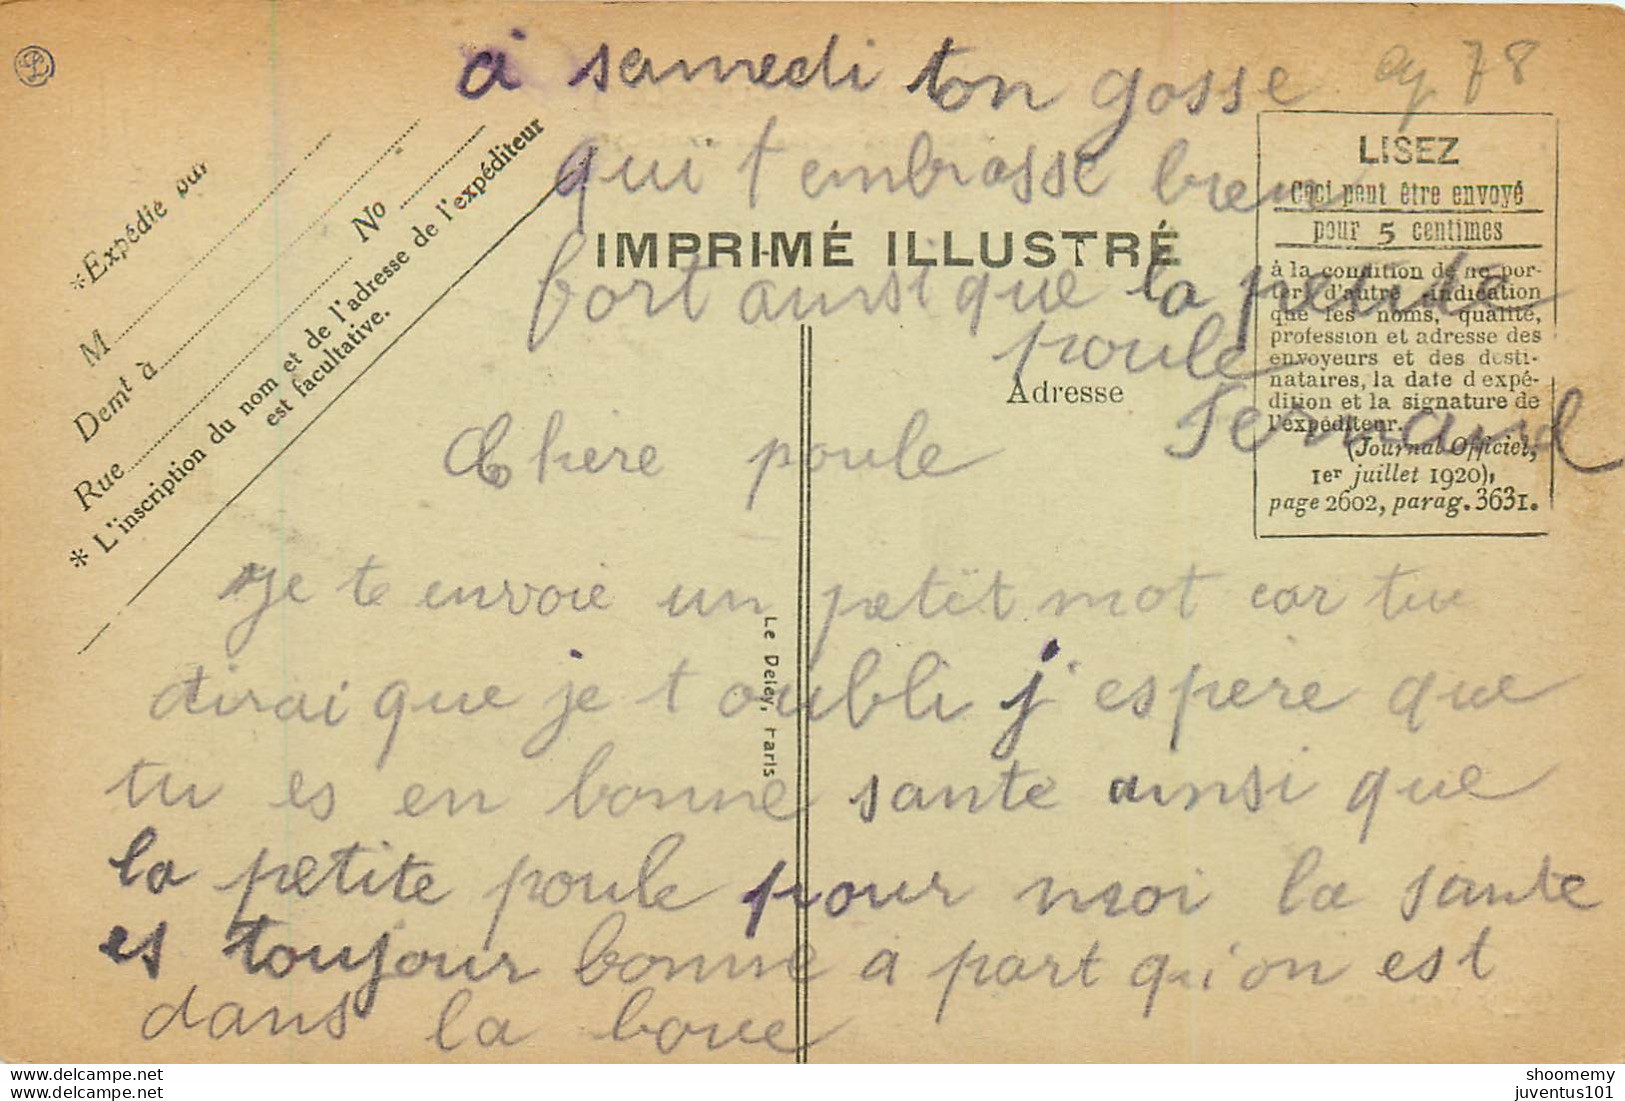 à samedi ton gosse
qui t embrasse bien
fort ainsi que la petite
poule
Fernand
78
*Expédié par
M
Demt à
Rue
No
* L'inscription du nom et de l'adresse de l'expéditeur
est facultative.
IMPRIMÉ ILLUSTRÉ
Adresse
LISEZ
Ceci peut être envoyé
pour 5 centimes
à la condition de ne por-
ter d'autre indication
que les noms, qualité,
profession et adresse des
envoyeurs et des desti-
nataires, la date d'expé-
dition et la signature de
l'expéditeur.
(Journal Officiel,
1er juillet 1920),
page 2602, parag. 3631.
Chère poule
Je te envoie un petit mot car tu
dirai que je t oubli j espere que
tu es en bonne sante ainsi que
la petite poule pour moi la sante
es toujour bonne a part qu'on est
dans la boue
Le Deley, Paris
delcampe.net
shoomemy
www.delcampe.net
juventus101